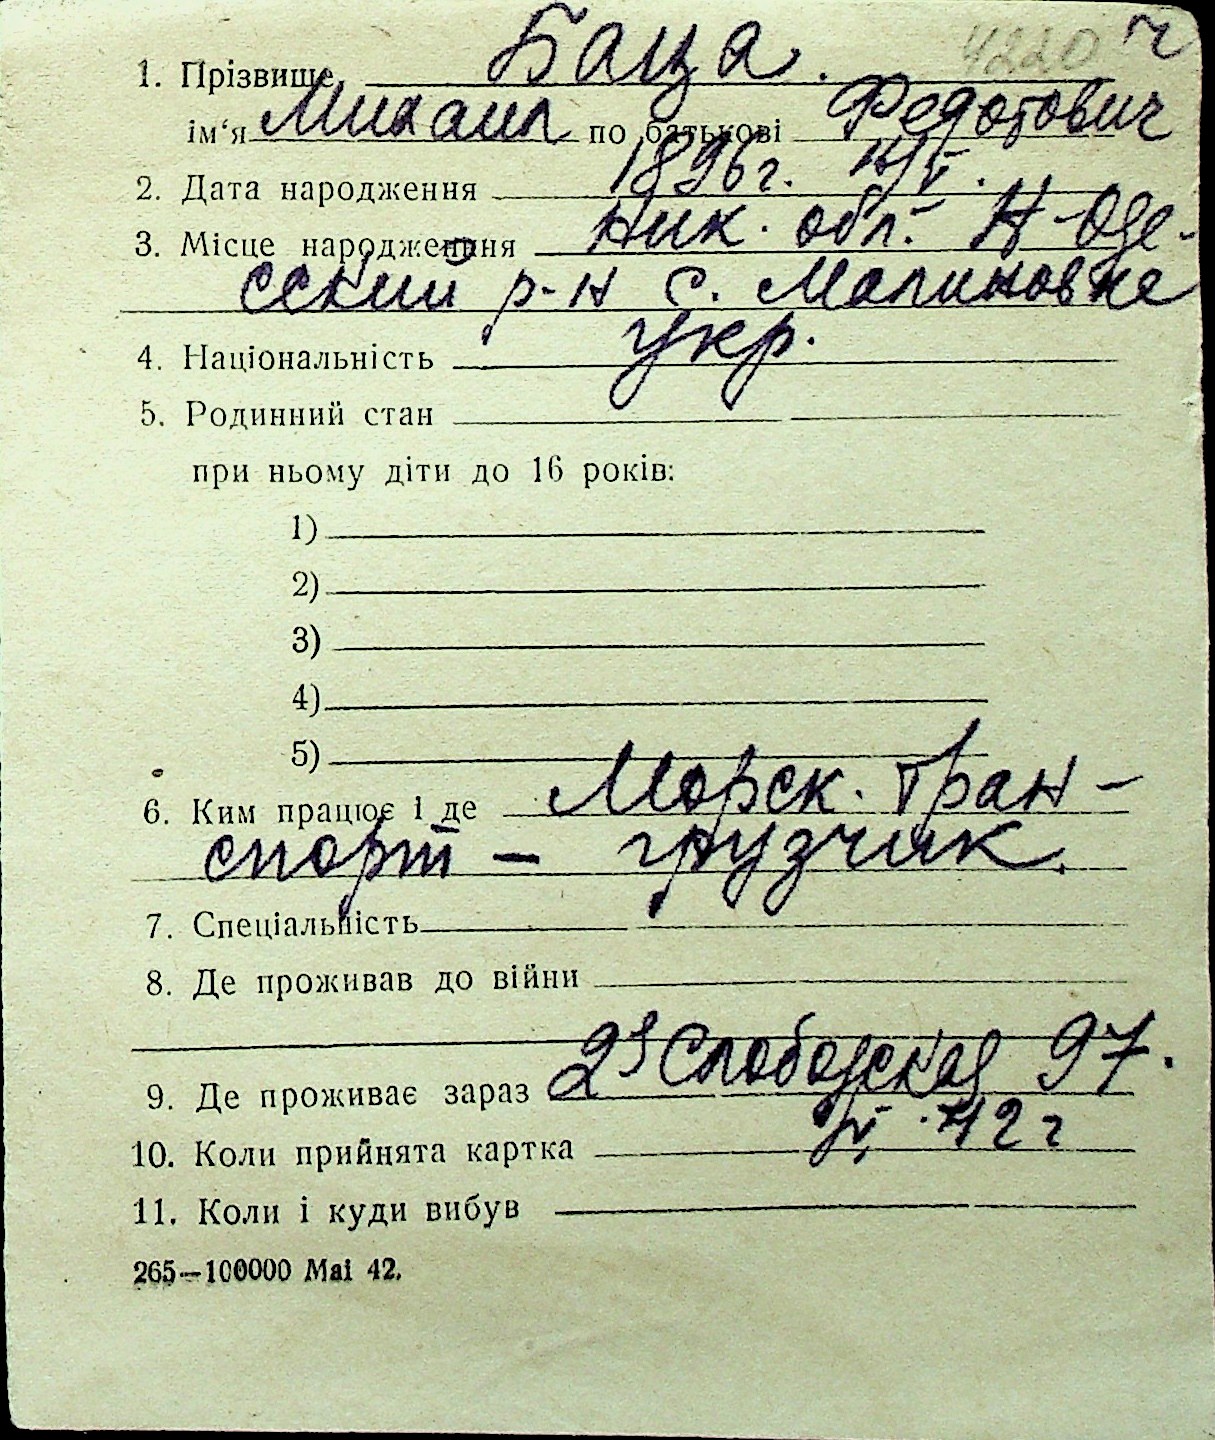 4220 ч
1. Прізвище Баца.
ім‘я Михаил по батькові Федотович
2. Дата народження 1896 г.
3. Місце народження Ник. обл. Н-Оде-
сский р-н с. Малиновке
4. Національність укр.
5. Родинний стан
при ньому діти до 16 років:
1)
2)
3)
4)
5)
6. Ким працює і де Морск. тран-
спорт – грузчик.
7. Спеціальність
8. Де проживав до війни
9. Де проживає зараз 2я Слободская 97.
10. Коли прийнята картка 42 г
11. Коли і куди вибув
265—100000 Mai 42.